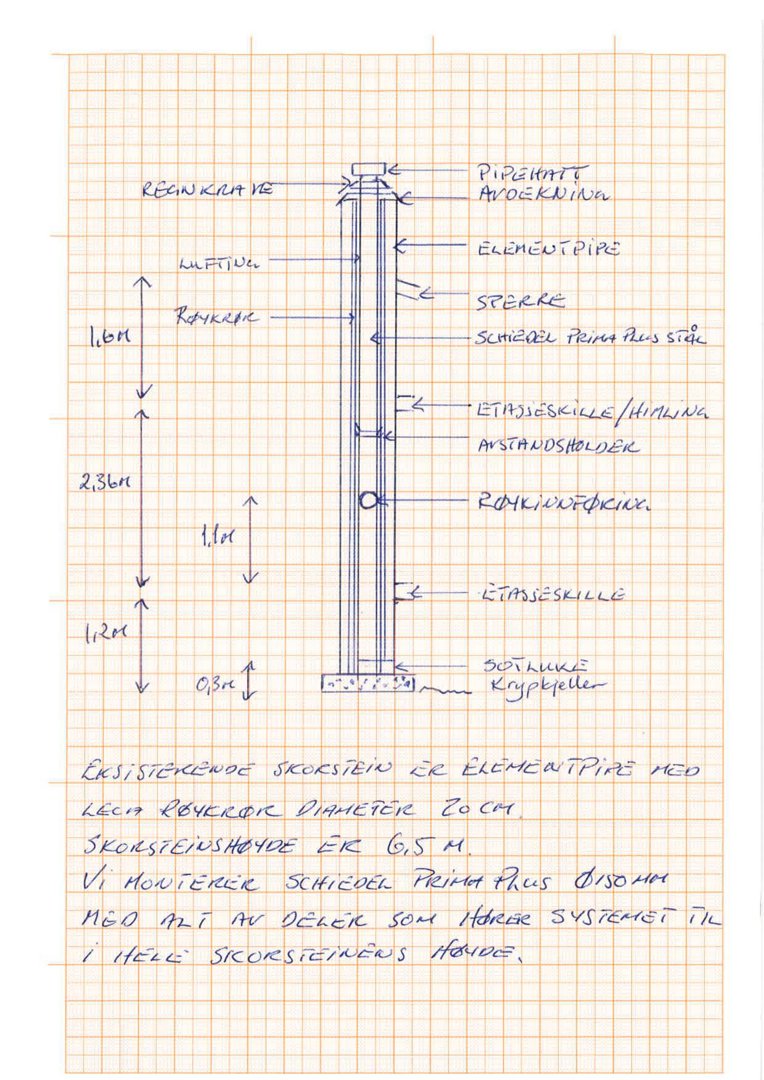 PIPEHATT
REGNKRAVE
AVDEKNING
ELEMENTPIPE
LUFTING
SPERRE
RØYKRØR
1,6M
SCHIEDEL PRIMA PLUS STÅL
ETASJESKILLE/HIMLING
AVSTANDSHOLDER
2,36M
RØYKINNFØRING
1,1M
ETASJESKILLE
1,2M
SOTLUKE
0,3M
Krypkjeller
EKSISTERENDE SKORSTEIN ER ELEMENTPIPE MED
LECA RØYKRØR DIAMETER 20 CM.
SKORSTEINSHØYDE ER 6,5 M.
VI MONTERER SCHIEDEL PRIMA PLUS Ø150MM
MED ALT AV DELER SOM HØRER SYSTEMET TIL
I HELE SKORSTEINENS HØYDE.